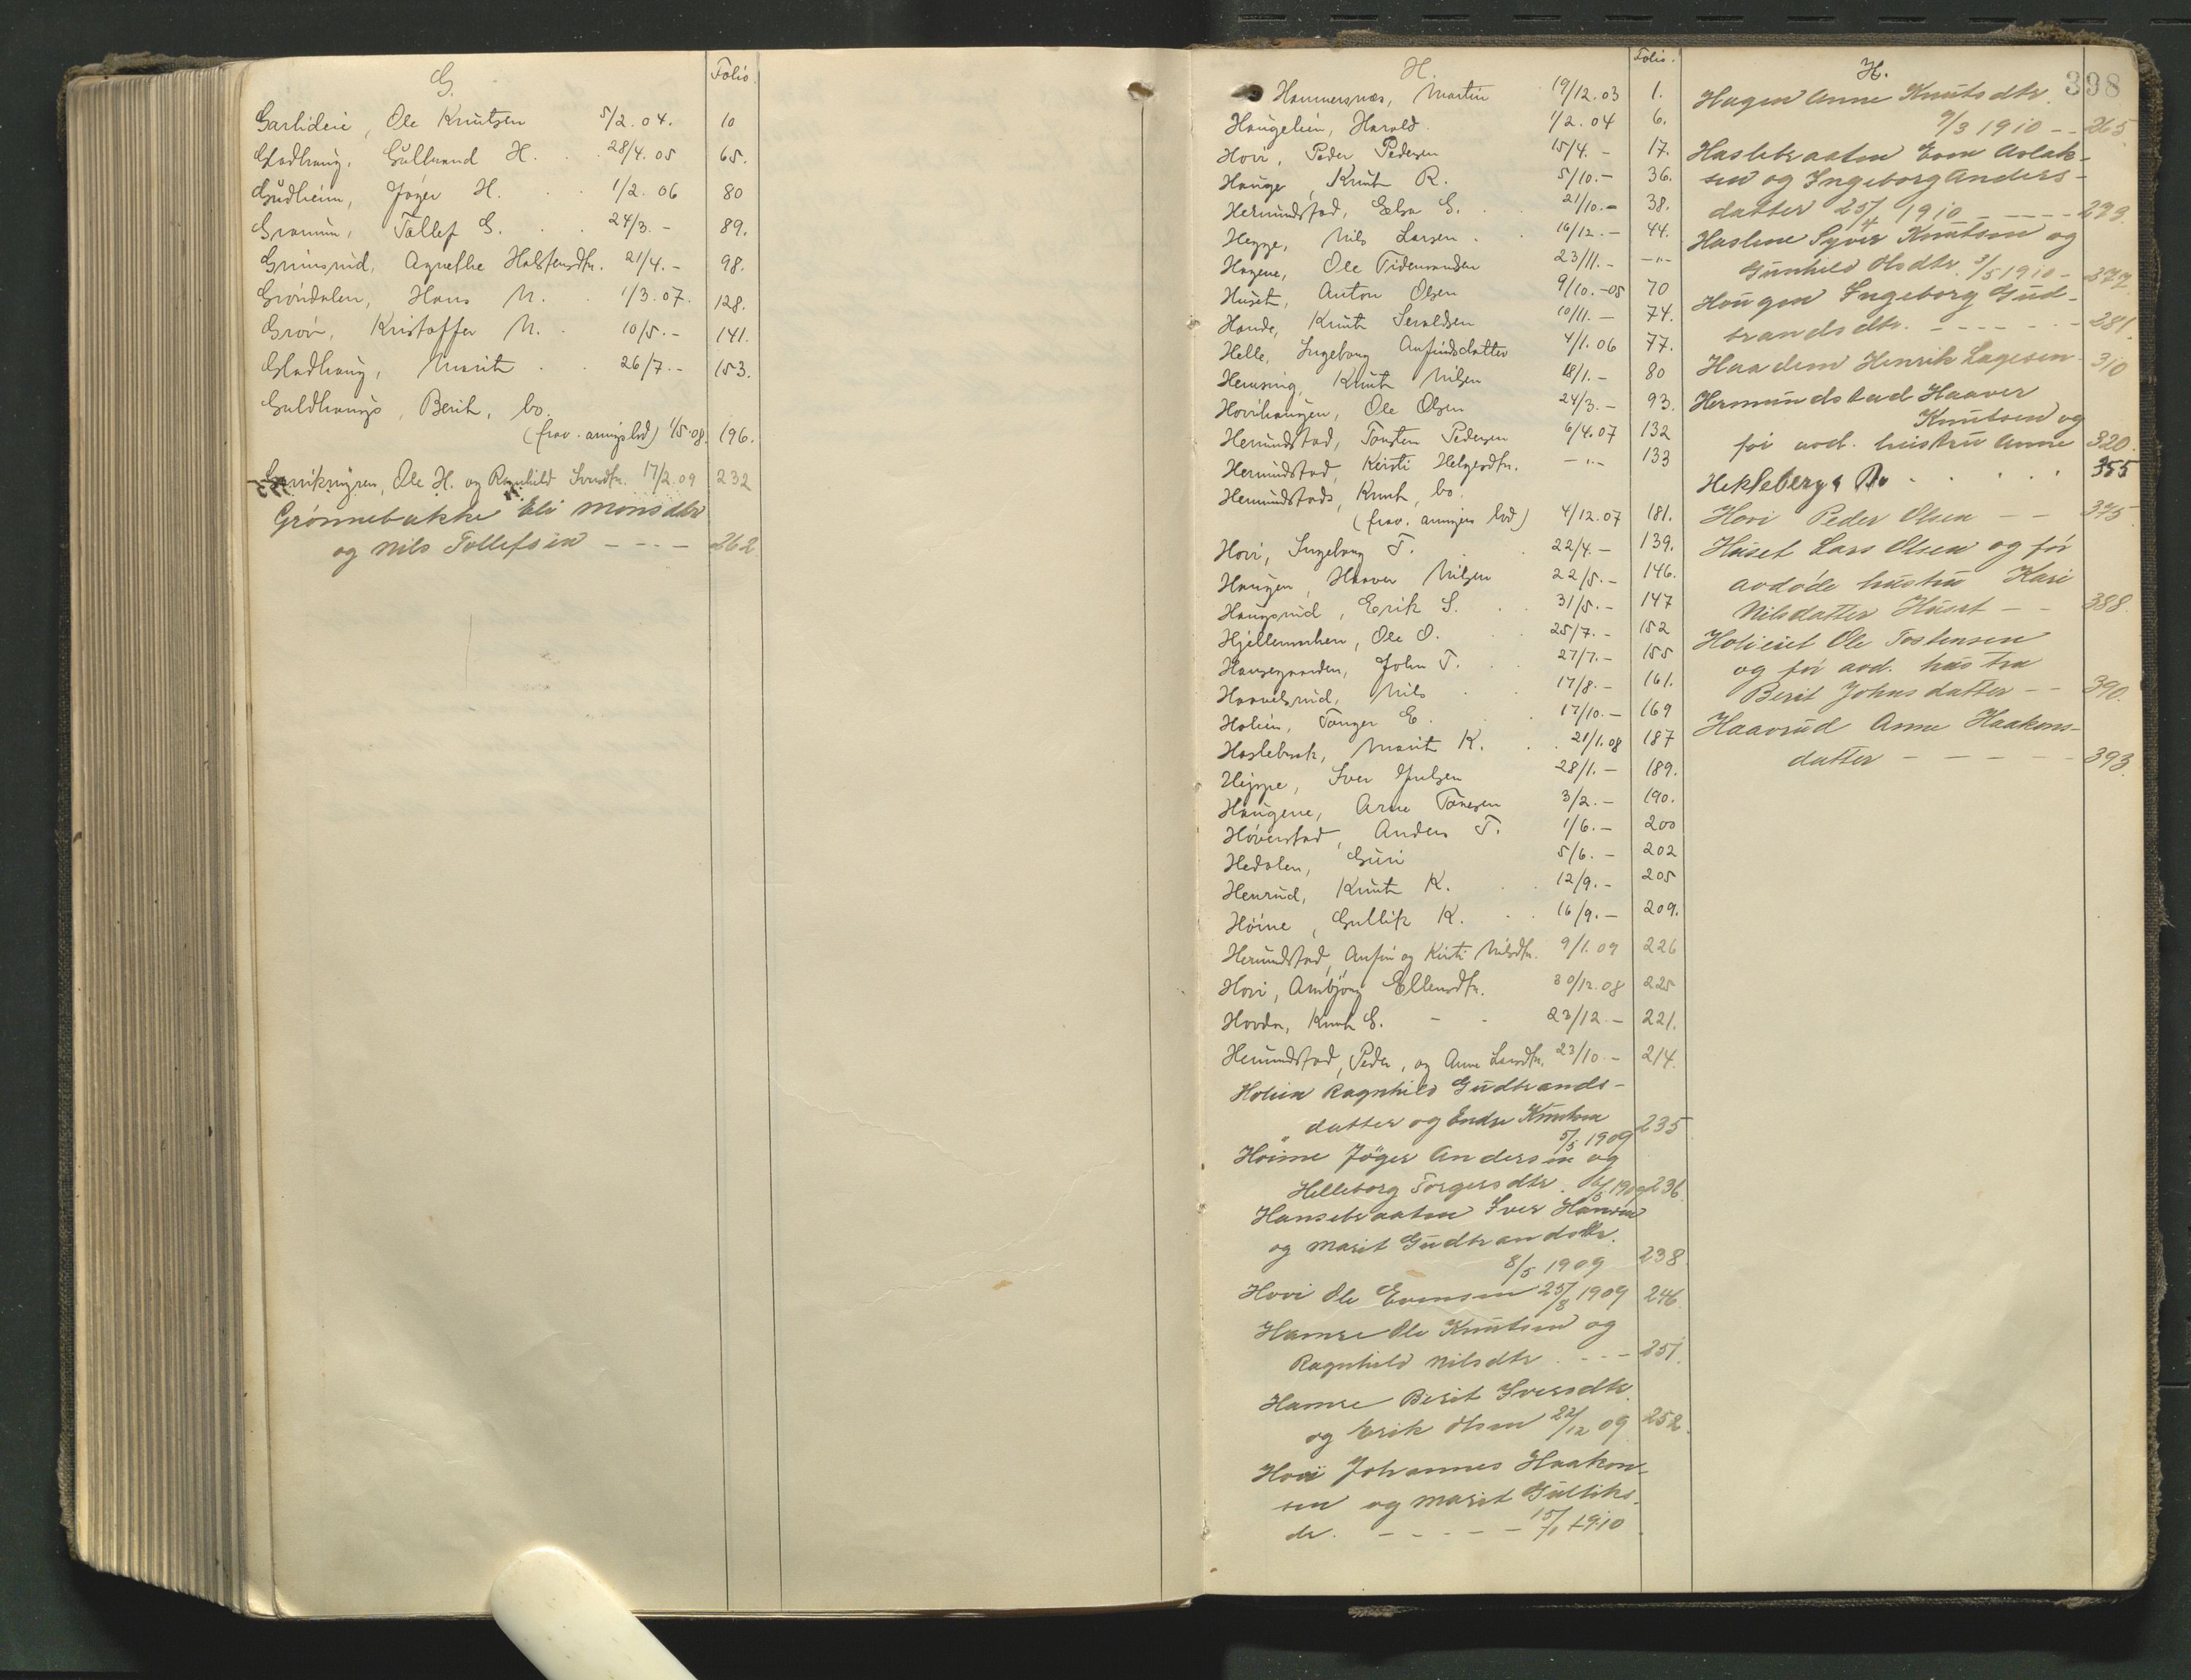 G.
Folio.
Garlideie, Ole Knutsen 5/2.04. 10
Gladhaug, Gulbrand H. 28/4.05 65.
Gudheim, Jøger H. 1/2.06 80
Granum, Tollef G. 24/3.- 89.
Grimsrud, Agnethe Halstensdtr. 21/4.- 98.
Grøndalen, Hans N. 1/3.07. 128.
Grøv, Kristoffer N. 10/5.- 141.
Gladhaug, Marit 26/7.- 153.
Guldhaugs, Berit, bo.
(frav. arvings lod) 1/5.08. 196.
Ole H. og Ragnhild Iversdtr. 17/2.09 232
Grønnebakke Eli Monsdtr
og Nils Tollefsen - - - - 262.
H.
Folio.
Hammersnæs, Martin 19/12.03 1.
Haugelien, Harald 1/2.04 6.
Hovi, Peder Pedersen 15/4. - 17.
Hauge, Knut R. 5/10.- 36.
Hermundstad, Eble E. 21/10.- 38.
Hegge, Nils Larsen 16/12.- 44.
Hagene, Ole Tidemandsen 23/11.- -"-
Huset, Anton Olsen 9/10.-05 70
Hande, Knut Iversen 10/11.- 74.
Helle, Ingeborg Anfindsdatter 4/1.06 77.
Hemsing, Knut Nilsen 18/1.- 80
Hovihaugen, Ole Olsen 24/3.- 93.
Hermundstad, Torsten Pedersen 6/4.07 132
Hermundstad, Kirsti Helgesdtr. -"- 133
Hermundstads, Knut, bo.
(frav. arvinges lod) 4/12.07 181.
Hovi, Ingeborg T. 22/4.- 139.
Haugen, Haaver Nilsen 22/5.- 146.
Haugsrud, Erik S. 31/5.- 147
Hjellemoken, Ole O. 25/7.- 152
Haugegaarden, John T. 27/7.- 155
Haavelsrud, Nils 17/8.- 161.
Holien, Torger E. 17/10.- 169
Haslebrek, Marit K. 21/1.08 187
Hippe, Iver Julsen 28/1.- 189.
Haugene, Arne Tøresen 3/2.- 190.
Høverstad, Anders T. 1/6.- 200
Hedalen, Guri 5/6.- 202
Henrud, Knut K. 12/9.- 205
Høine, Gullik K. 16/9.- 209.
Hermundstad, Anfin og Kirsti Nilsdtr. 9/1.09 226
Hovi, Ambjørg Ellensdtr. 30/12.08 225
Hovda, Knut E. - - 23/12.- 221.
Hermundstad, Peder, og Anne Larsdtr. 23/10.- 214.
Holien Ragnhild Gudbrands-
datter og Endre Knutsen 235
5/5 1909
Høime Jøger Andersen og
Helleborg Torgersdtr. 6/5 1909 236.
Hansebraaten Iver Hansen
og Marit Gudbrandsdtr.
8/5 1909 238
Hovi Ole Evensen 25/8 1909 246.
Hamre Ole Knutsen og
Ragnhild Nilsdtr. - - - 251.
Hamre Berit Iversdtr.
og Erik Olsen 22/12 09 252.
Hovi Johannes Haakon-
sen og Marit Gulliks-
dr. - - - - - 15/1 1910
H.
398
Hagen Anne Knutsdtr.
9/3 1910 - - 265.
Haslebraaten Even Aslak-
sen og Ingeborg Anders-
datter 25/4 1910 - - - - 299.
Haslene Syver Knutsen og
Gunhild Olsdtr. 3/5 1910 - 272.
Haugen Ingeborg Gud-
brandsdtr. - - - - - - 281.
Haadem Henrik Lagesen 310
Hermundstad Haaver
Knutsen og
for avd. hustru Anne 320.
Hekleberg, 355
Hovi Peder Olsen - - 375.
Huset Lars Olsen og for
avdøde hustru Kari
Nilsdatter Huset - - 388.
Holieiet Ole Tostensen
og for avd. hustru
Berit Johnsdatter - - 390.
Haavrud Anne Haakons-
datter - - - - - 393.